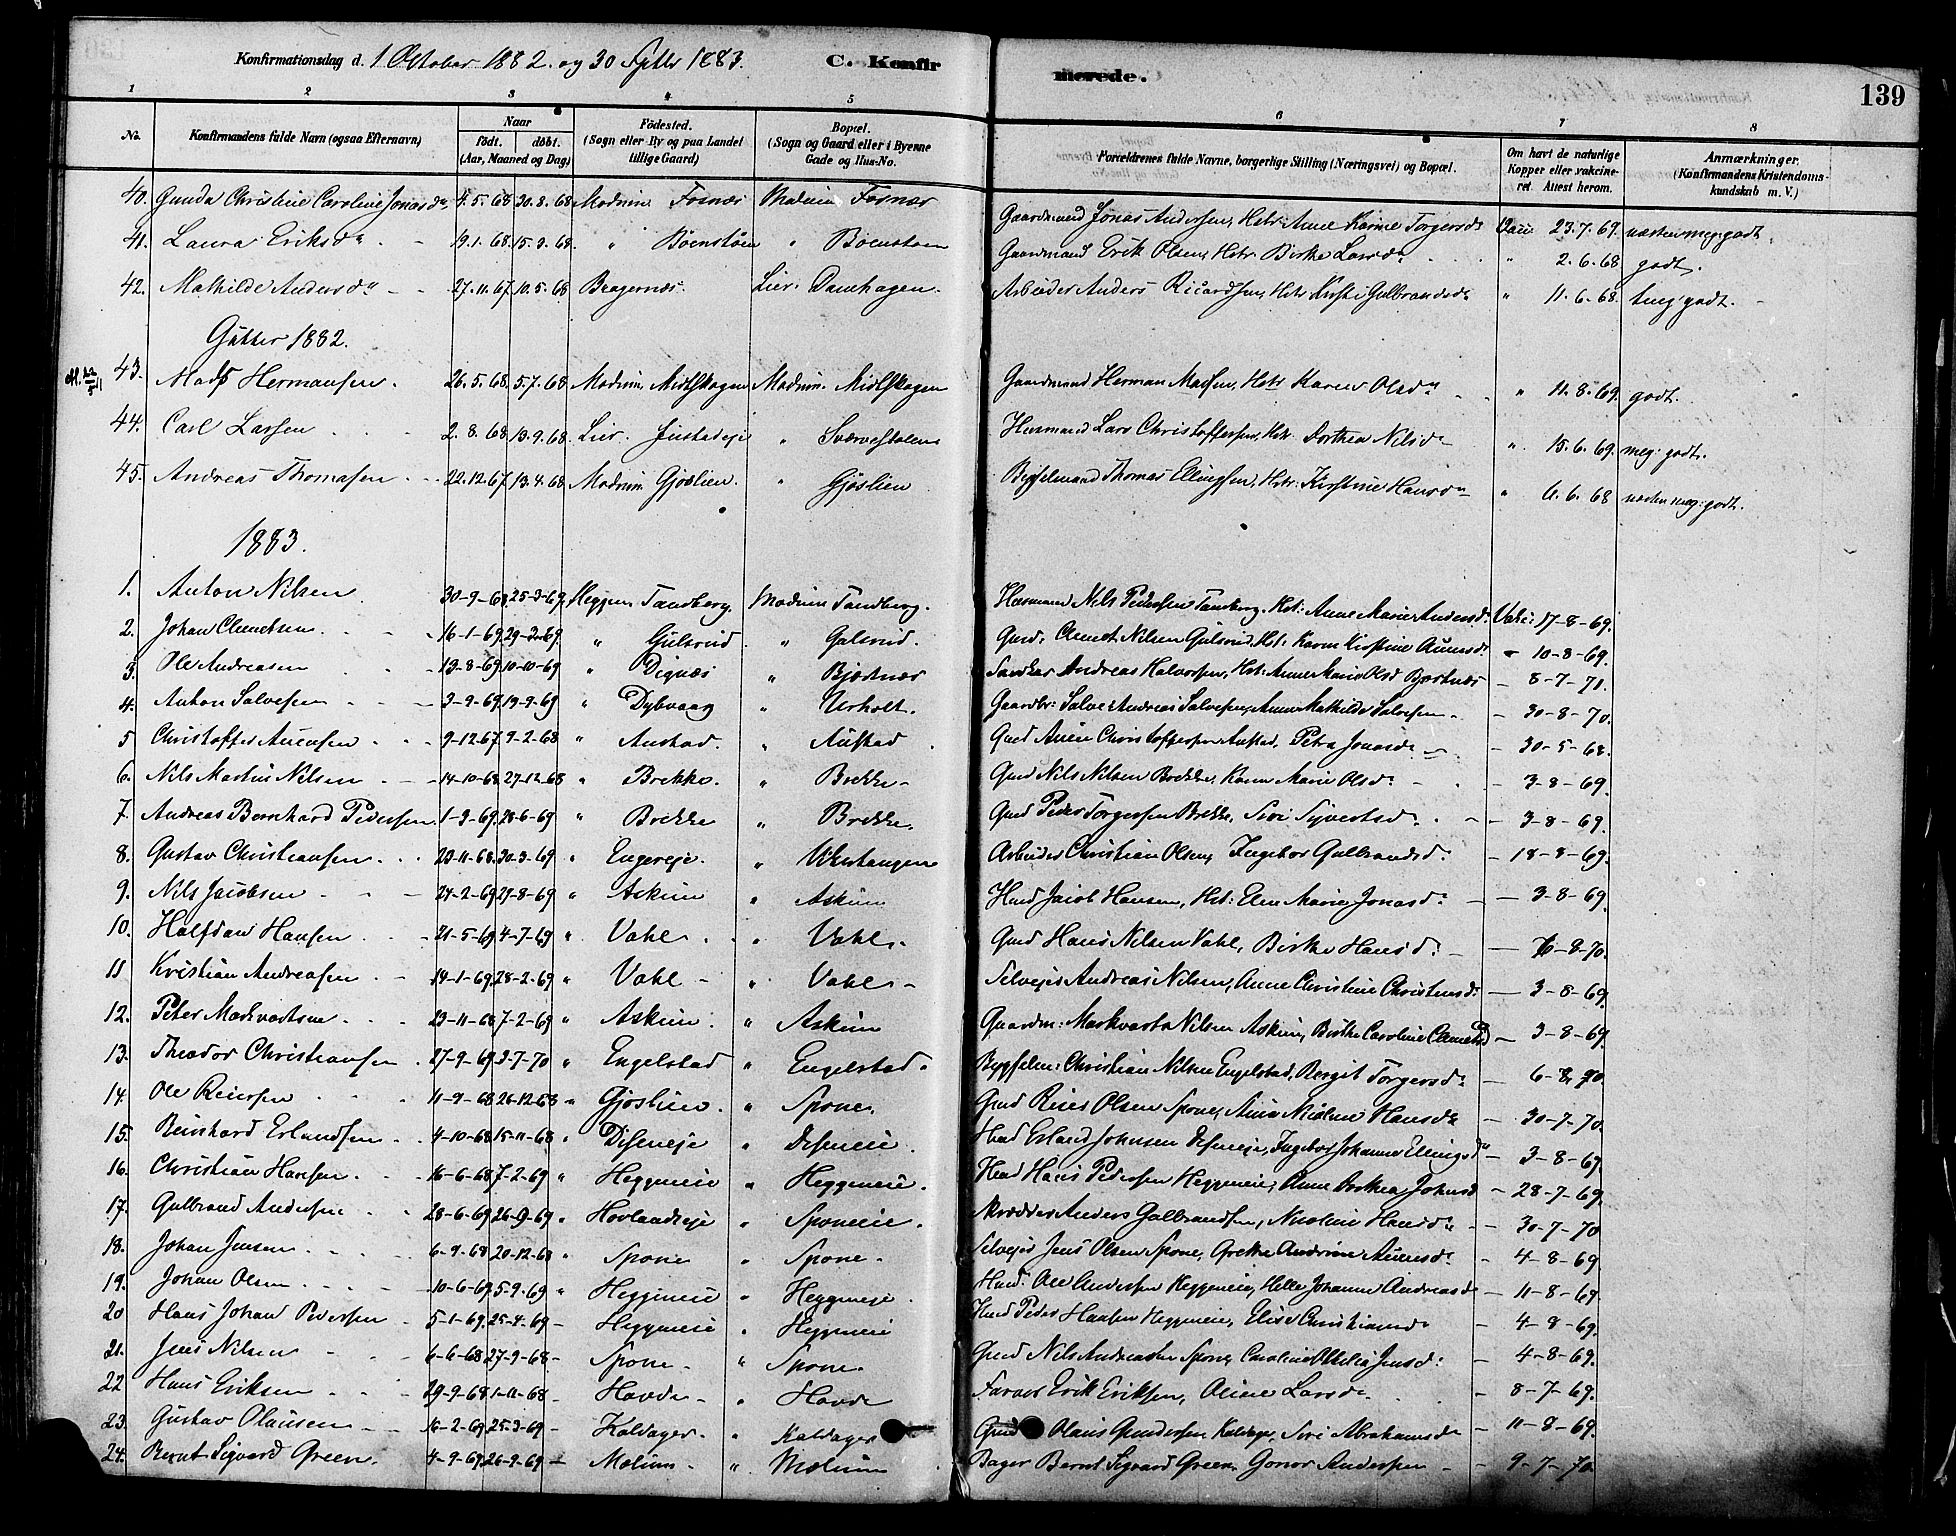 Konfirmationsdag d. 1 October 1882. og 30 Septbr 1883. C. Konfirmerede. 139
1 2 3 4 5 6 7 8
No. Konfirmandens fulde Navn (ogsaa Efternavn) Naar födt. döbt. (Aar, Maaned og Dag) Födested. (Sogn eller By og paa Landet tillige Gaard) Bopæl. (Sogn og Gaard eller i Byerne Gade og Hus-No. Forældrenes fulde Navne, borgerlige Stilling (Næringsvei) og Bopæl. Om havt de naturlige Kopper eller vaccineret. Attest herom. Anmærkninger. (Konfirmandens Kristendomskundskab m. V.)
40. Gunda Christine Caroline Jonasdr 4.5.68 30.8.68 Modum Fosnæs Modum Fosnæs Gaardmand Jonas Andersen, Hstr: Anne Karine Torgersdr 23.7.69. næsten meg: godt.
41. Laura Eriksdr 19.1.68 15.3.68. " Böenstöen " Böenstöen Gaardmand Erik Olsen, Hstr. Birthe Larsdr " 2.6.68 godt.
42. Mathilde Andersdr 27.11.67 10.5.68 Bragernæs. Lier: Damhagen. Arbeider Anders Ricardsen, Hstr Kirsti Gulbrandsdr " 11.6.68. godt.
Gutter 1882.
43. Mads Hermansen. 26.5.68. 5.7.68 Modum. Modum. Gaardmand Herman Madsen, Hstr Karen Olsdr " 11.8.69. godt.
44. Carl Larsen 2.8.68 13.9.68. Lier. Justadeje " Sværvesdalen Husmand Lars Christoffersen, Hstr. Dorthea Nilsdr " 15.6.69. meg: godt.
45. Andreas Thomasen 22.12.67 13.4.68 Modum Gjöslien. " Gjöslien Bygselmand Thomas Ellingsen, Hstr: Kirstine Hansdr " 6.6.68 næsten meg: godt.
1883.
1. Anton Nilsen 30-9-68. 25-3-69. Heggen Tandberg. Modum Tandberg. Husmand Nils Pedersen Tandberg. Hst: Anne Marie Andersdr Vakc: 17-8-69.
2. Johan Clemetsen 16-1-69. 29-3-69 " Gulsrud " Gulsrud. Gmd: Clemet Nilsen Gulsrud, Hst: Karen Kirstine - 10-8-69.
3. Ole Andreasen 13-8-69 10-10-69 " Dignæs " Bjertnæs Andreas Halvorsen, Hst: Anne Marie Olsd Bjertnæs - 8-7-71.
4. Anton Salvesen 3-9-69. 19-9-69 " Dybvaag " Urholt. Gaardbr: Salve Andreas Salvesen, Anne Mathilde Salvesen - 30-8-70.
5 Christoffer Auensen 9-12-67 9-2-68 " Austad. " Austad Gmd Auen Christoffersen Austad, Petra Jonasdr - 30-5-68.
6. Nils Martin Nilsen 14-10-68. 27-12-68 " Brekke. " Brekke - Gmd Nils Nilsen Brekke, Karen Marie Olsdr - 3-8-69.
7. Andreas Bernhard Pedersen 1-3-69. 28-6-69 " Brekke " Brekke. Gmd Peder Torgersen Brekke, Siri Syvertsdr - 3-8-69.
8. Gustav Christiansen 23-11-68. 30-3-69 " Engereje. " Arbeider Christian Olsen, Ingebor Gulbrandsdr. - 18-8-69.
9. Nils Jacobsen 24-2-69 29-8-69 " Askim " Askim Hmd Jacob Hansen, Hst: Elen Marie Jonasdr - 3-8-69.
10. Halfdan Hansen 21-5-69 4-7-69 " Vahl. " Vahl. Gmd Hans Nilsen Vahl, Birthe Hansdr - 8-70.
11 Kristian Andreasen 14-1-69. 28-2-69 " Vahl - " Vahl - Selvejer Andreas Nilsen, Anne Christine Christensdr - 3-8-69.
12. Peter Markvartsen 23-11-68 7-2-69 " Askim. " Askim Gaardm: Markvarts Nilsen Askim, Birthe Caroline Clemetsd - 3-8-69.
13. Theodor Christiansen 27-9-69. 3-7-70 " Engelstad " Engelstad. Bygselm: Christian Nilsen Engelstad, Bergit Torgersdr - 6-8-70.
14. Ole Reiersen 11-9-68 26-12-68 " Gjöslien. " Spone. Gmd Reier Olsen Spone, Hansdr - 30-7-70.
15. Reinhard Erlandsen 4-10-68. 15-11-68 " Diseneje " Diseneie. Hmd Erland Johnsen Diseneje, Ingebor Johanne Ellingsdr - 3-8-69.
16. Christian Hansen 16-6-68 7-2-69 " Heggeneie " Heggeneie. Hmd Hans Pedersen Heggeneie, Anne Dorthea Johnsd - 28-7-69.
17. Gulbrand Andersen 28-6-69. 26-9-69 " Hovlandseje " Sponeeie. Skrædder Anders Gulbrandsen, Nicoline Hansdr - 30-7-70
18. Johan Jensen 6-9-68 20-12-68 " Spone " Spone - Selvejer Jens Olsen Spone, Grethe Andrine Auensdr - 4-8-69
19. Johan Olsen 10-6-69. 5-9-69 " Heggeneie " Heggeneje. Hmd. Ole Andersen Heggeneie, Helle Johanne Andreasd - 11-8-69
20 Hans Johan Pedersen 5-1-69. 25-4-69 - Heggeneie " Heggeneie Hmd Peder Hansen Heggeneie, Elise Christiansdr - 4-8-69.
21. Jens Nilsen 6-6-68 27-9-68 - Spone - " Spone. Gmd Nils Andreasen Spone, Caroline Othilia Jensd: - 4-8-69.
22 Hans Eriksen 29-9-68 1-11-68 - Hovde - " Hovde Farver Erik Eriksen, Oline Larsdr - 8-7-69.
23. Gustav Olausen 16-2-69. 25-3-69 - Kaldager. " Kaldager Gmd Olaus Gundersen Kaldager, Siri Abrahamsdr - 11-8-69.
24. Bernt Sigvard Green. 4-9-69. 26-9-69 - Mælum - " Mælum Bager Bernt Sigvard Green. Gonor Andersen - 9-7-70